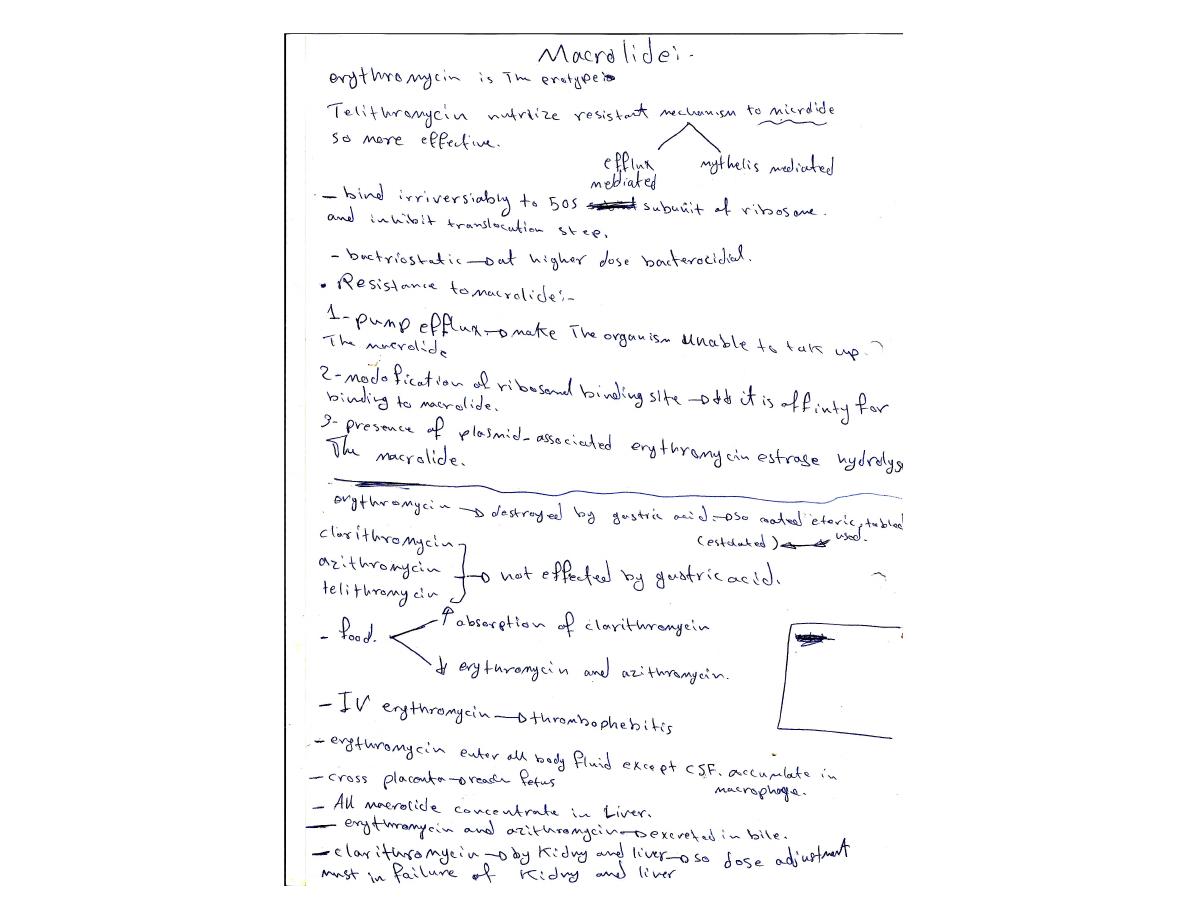 Macrolide:-
erythromycin is The protype
Telithromycin nutrilize resistant mechanism to macrolide
so more effective.
efflux mediated
mythelis mediated
- bind irriversiably to 50S subunit of ribosome.
and inhibit translocation step.
- bactriostatic → at higher dose bacterocidial.
• Resistance to macrolide:-
1- pump efflux → make The organism unable to tak up
The macrolide
2- modofication of ribosomal binding site → ↓↓ it is affinty for
binding to macrolide.
3- presence of plasmid-associated erythromycin estrase hydrolys
The macrolide.
erythromycin → destroyed by gastric acid → so coated eteric tabled
(estolated) ← used.
clarithromycin
azithromycin
telithromycin
→ not effected by gastric acid.
↑ absorption of clarithromycin
- food.
↓ erythromycin and azithromycin.
- IV erythromycin → thrombophebitis
- erythromycin enter all body fluid except CSF. accumulate in
macrophage.
- cross placenta → reach fetus
- All macrolide concentrate in Liver.
- erythromycin and azithromycin → excreted in bile.
- clarithromycin → by Kidny and liver → so dose adjustment
must in failure of Kidny and liver